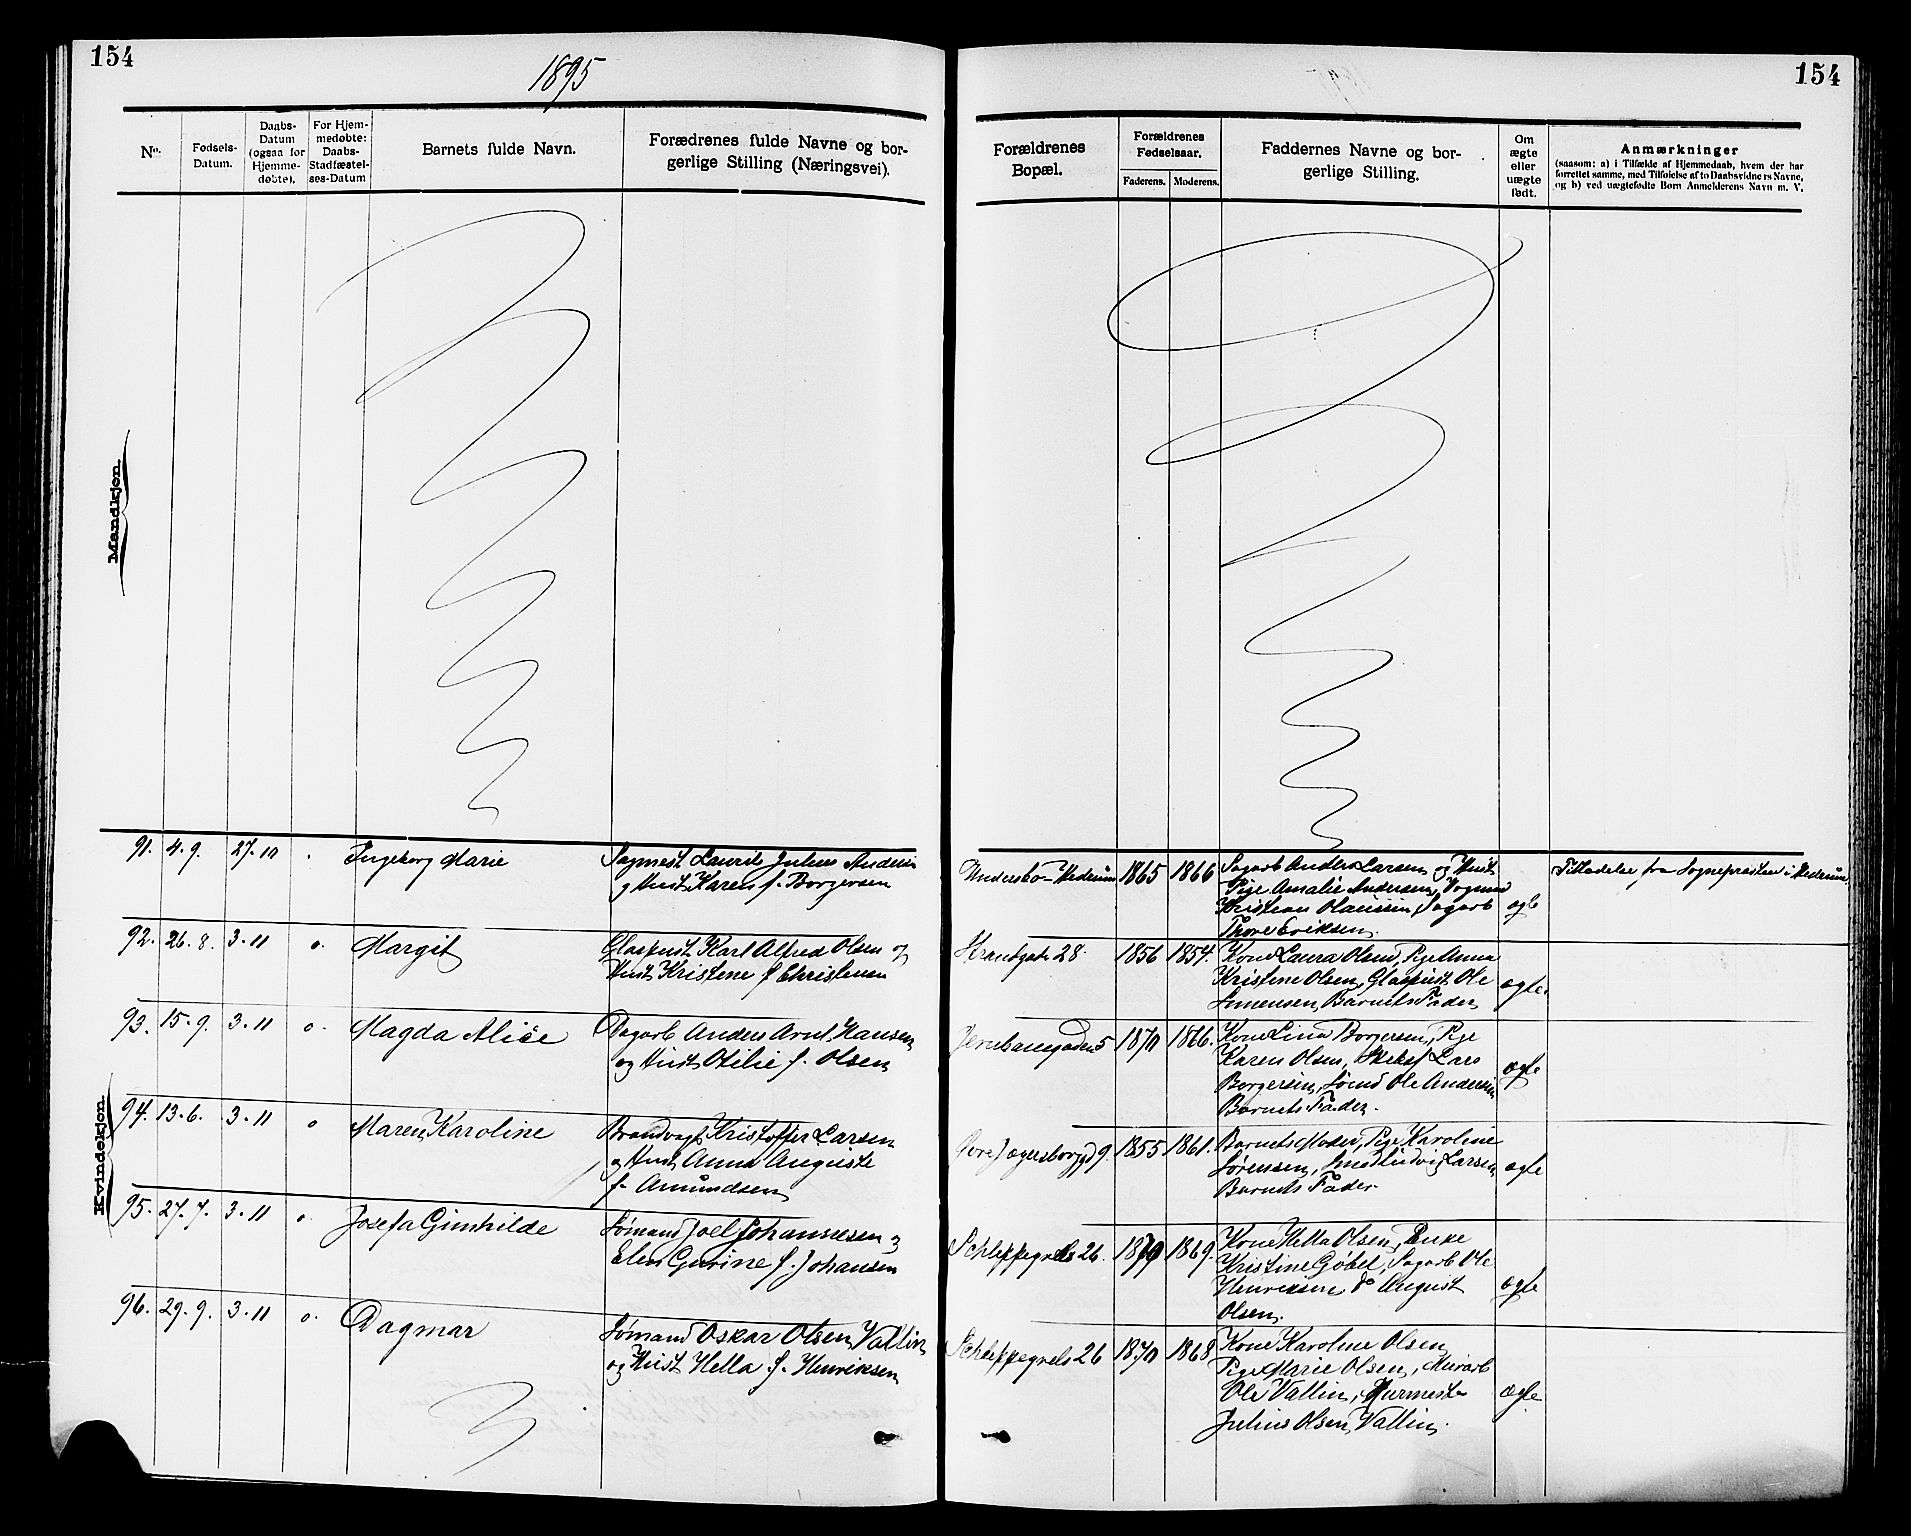 154
1895
No.
Fødsels-
Datum.
Daabs-
Datum
(ogsaa for
Hjemme-
døbte).
For Hjem-
medøbte:
Daabs-
Stadfæstel-
ses-Datum
Barnets fulde Navn.
Forædrenes fulde Navne og bor-
gerlige Stilling (Næringsvei).
Mandkjøn.
91. 4. 9. 27. 10 Ingeborg Marie
Sagmest Laurits Julius Andersen
og Hust. Karen f. Borgersen
92. 26. 8. 3. 11 o. Margit
Glaspust Karl Alfred Olsen og
Hust Kristine f Christensen
Kvindekjøn.
93. 15. 9. 3. 11 o. Magda Alice
Dagarb Anders Arnt Hansen
og Hust Otilie f. Olsen
94. 13. 6. 3. 11 o Maren Karoline
Brandvagt Kristoffer Larsen
og Hust Anna Auguste
f. Amundsen
95. 27. 7. 3. 11 o. Josefa Gunhilde
Sømand Joel Johannesen og
Elen Gurine f. Johansen
96. 29. 9. 3. 11 o. Dagmar
Sømand Oskar Olsen Vallin
og Hust Hella f. Henriksen
154
Forældrenes
Bopæl.
Forældrenes
Fødselsaar.
Faderens. Moderens.
Faddernes Navne og bor-
gerlige Stilling.
Om
ægte
eller
uægte
født.
Anmærkninger
(saasom: a) i Tilfælde af Hjemmedaab, hvem der har
forrettet samme, med Tilføielse af to Daabsvidners Navne,
og b) ved uægtefødte Børn Anmelderens Navn m. V.
1865 1866 Sagarb Anders Larsen og Hust
Pige Amalie Andersen, Vognmd
Kristian Olaussen, Sagarb
Thore Eriksen.
ægte
Tilladelse fra Sognepræsten i Hedrum.
Strandgade 28. 1856 1854. Kone Laura Olsen, Pige Anna
Kristine Olsen, Glaspust Ole
Simensen, Barnets Fader
ægte.
Jernbanegaden 5 1870 1866. Kone Lina Borgersen, Pige
Karen Olsen, Lars
Borgersen, Sømd Ole Andersen
Barnets Fader.
ægte
1855 1861. Barnets Moder, Pige Karoline
Sørensen, Smed Ludvig Larsen
Barnets Fader.
ægte
Schleppegrels 26. 1870 1869. Kone Hella Olsen, Enke
Kristine Göbel, Sagarb Ole
Henriksen do August
Olsen.
ægte
Schleppegrels 26 1870 1868 Kone Karoline Olsen
Pige Marie Olsen, Murarb
Ole Vallin, Murmester
Julius Olsen Vallin.
ægte